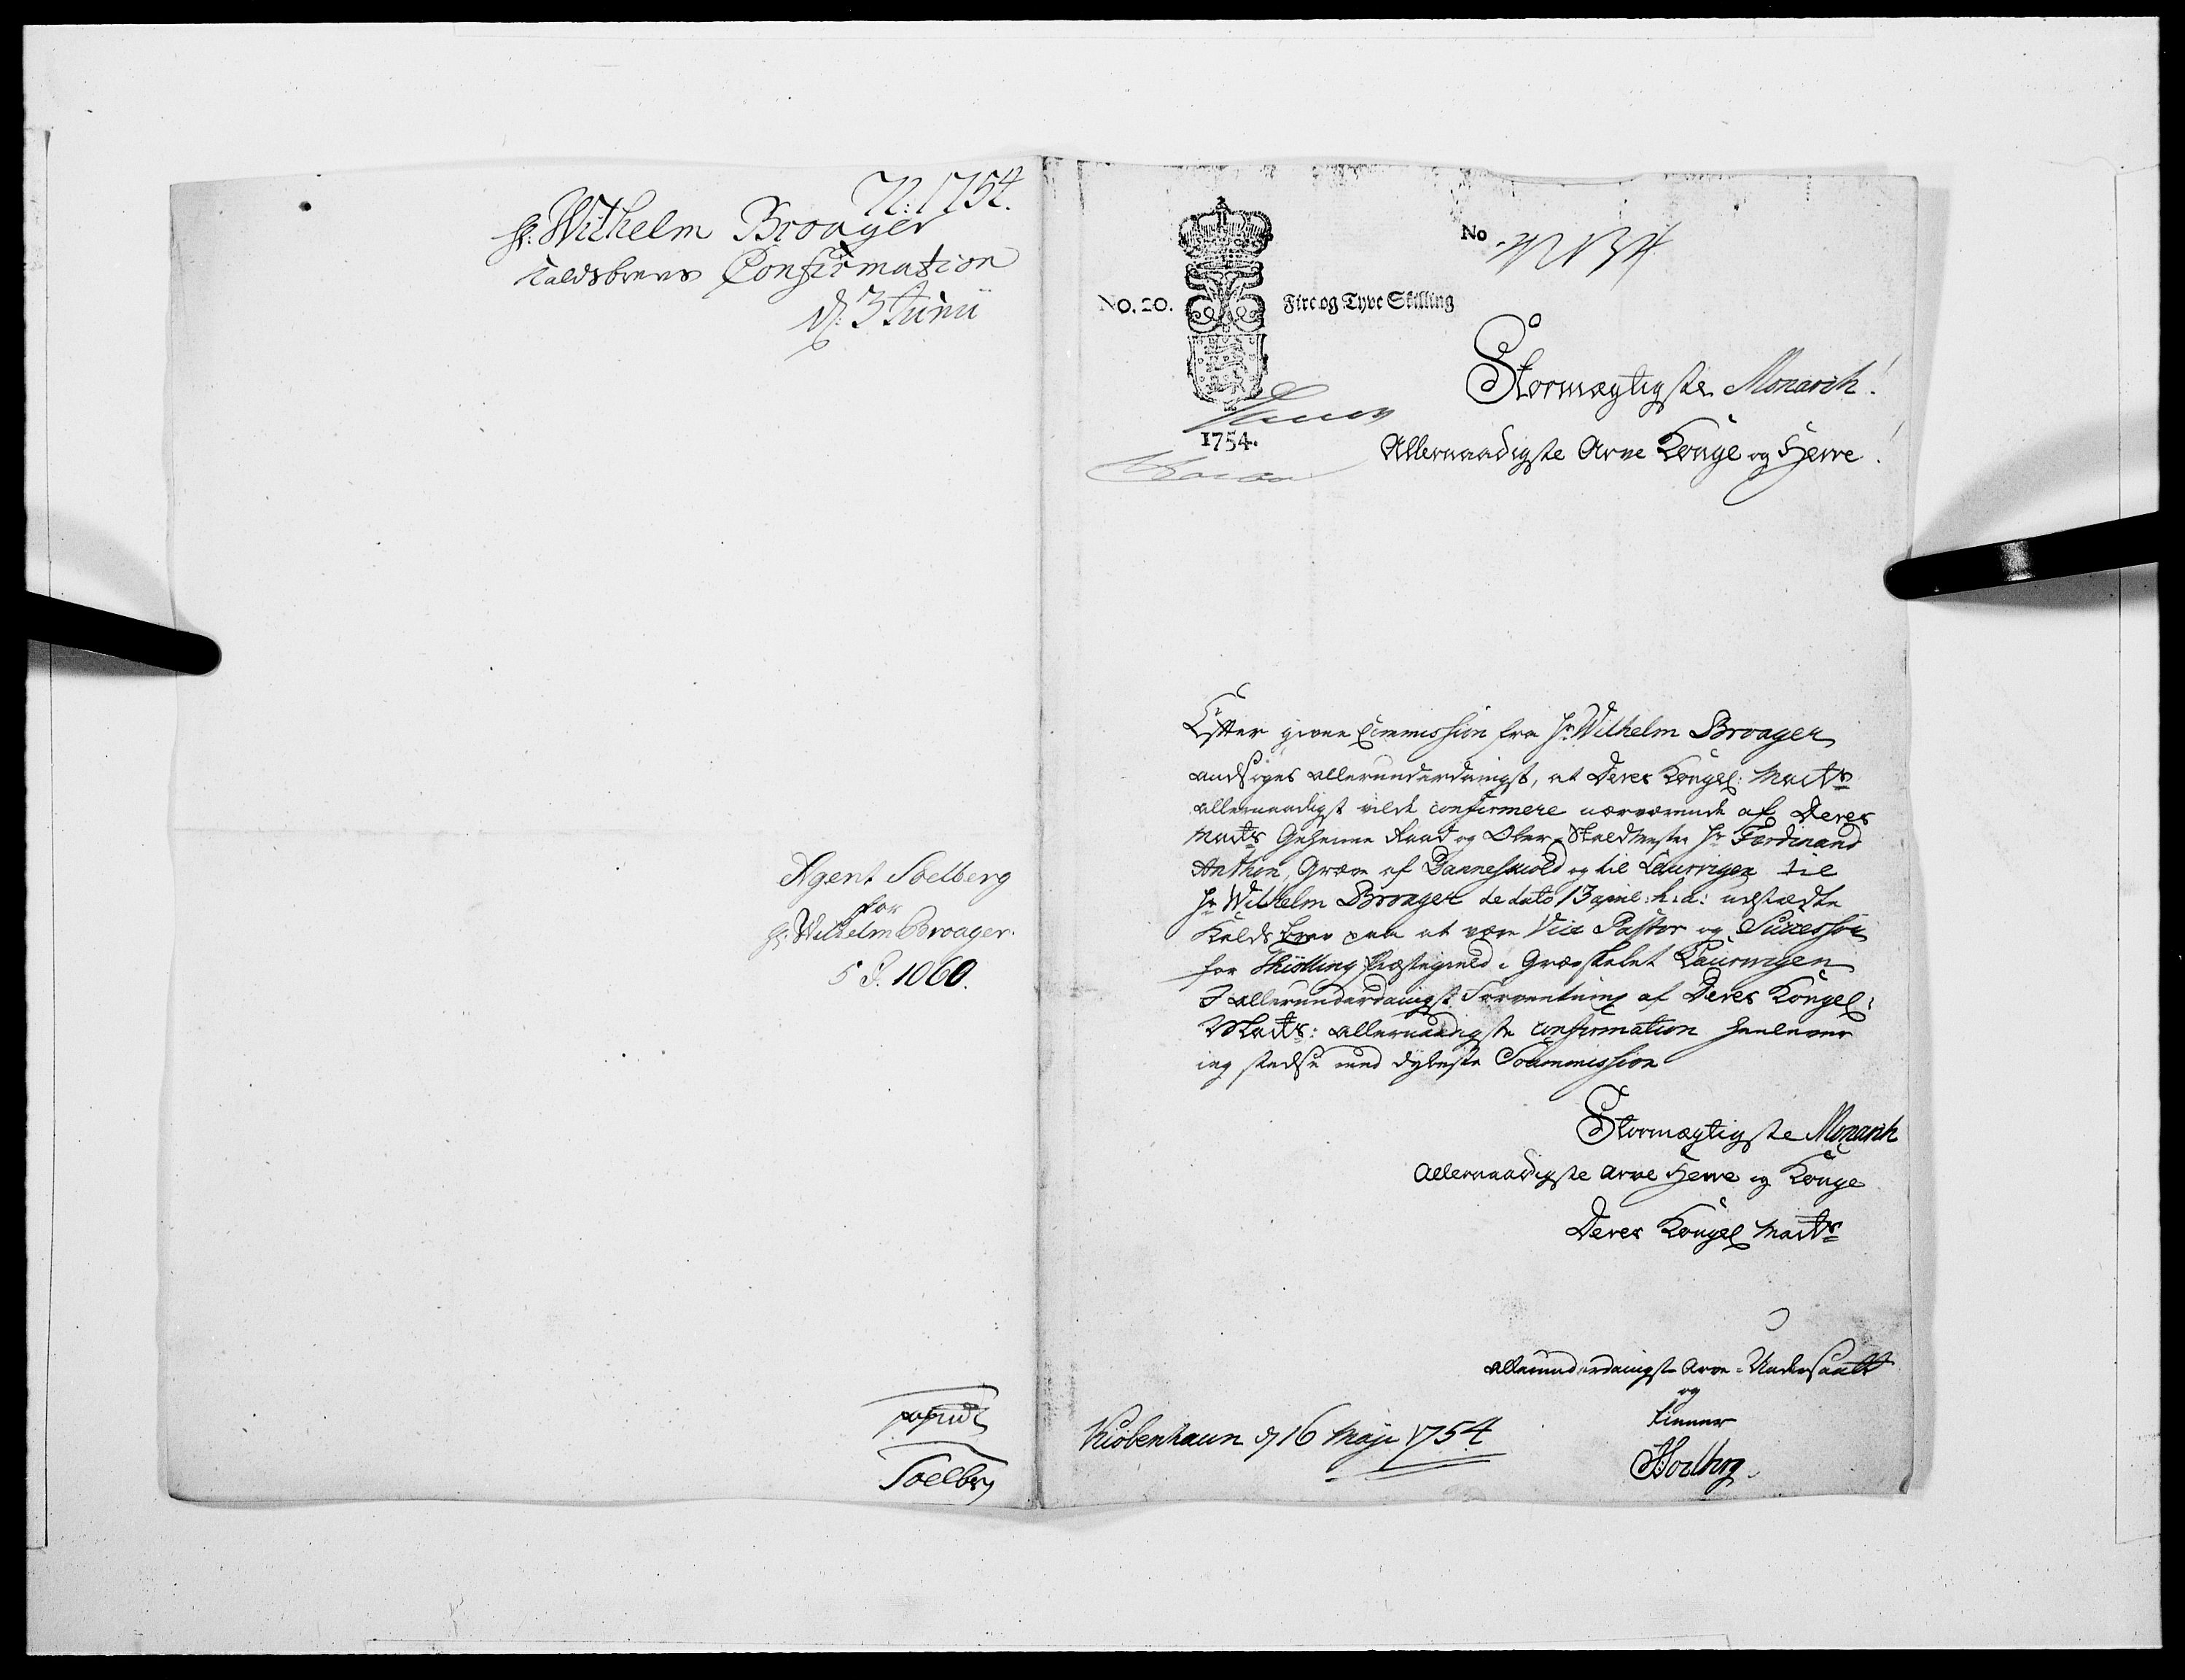 N: 1754.
Hr: Wilhelm Broager
Kaldsbrevs Confirmation
d: 3 Junii
Agent Soelberg
for
Hr: Wilhelm Broager.
5 S. 1060.
Soelberg
No
No. 20.
Fire og Tyve Skilling
1754.
Stormægtigste Monarch!
Allernaadigste Arve Konge og Herre!
Efter given Commission fra Hr Wilhelm Broager
andsøges allerunderdanigst, at Deres Kongel: Maits
allernaadigst vilde confirmere nærværende af Deres
Maits Geheime Raad og Ober-Staldmester Hr Ferdinand
Anthon, Græve af Danneskiold og til Laurvigen til
Hr Wilhelm Broager de dato 13 april: h: a: udstædte
Kalds Brev paa at være Vice Pastor og Successor
for Thiölling Præstegield i Grævskabet Laurvigen
I allerunderdanigst Forventning af Deres Kongel:
Maits: allernaadigste confirmation henlever
ieg stedse med dybeste Soummission
Stormægtigste Monarch
Allernaadigste Arve Herre og Konge
Deres Kongel Maits
allerunderdanigste Arve-Undersaatt
og
tienner
Soelberg
Kiöbenhaun d 16 Maji 1754